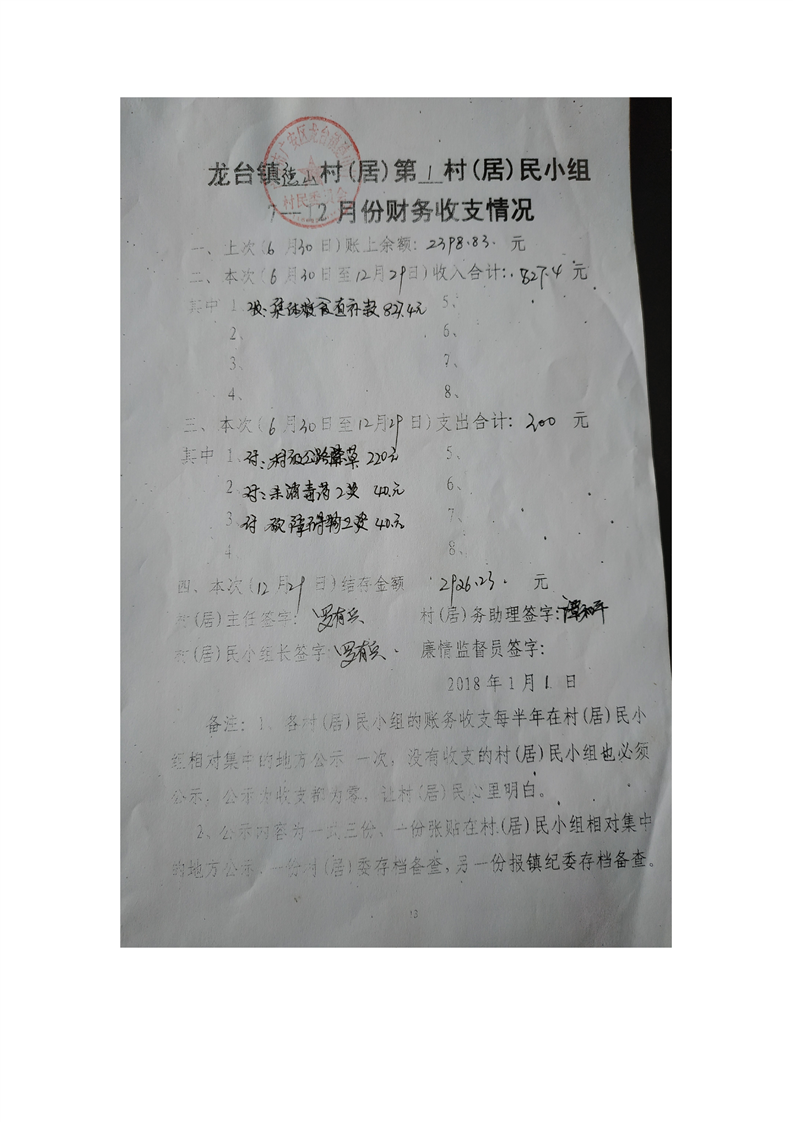 龙台镇 村(居)第1村(居)民小组
7—12月份财务收支情况
一、上次(6月30日)账上余额: 2398.83. 元
二、本次(6月30日至12月29日)收入合计: 827.4 元
其中 1、收: 集体粮食直补款827.4元
2、
3、
4、
5、
6、
7、
8、
三、本次(6月30日至12月29日)支出合计: 300 元
其中 1、付: 公路 草 220元
2、付: 消毒药工资 40元
3、付 障碍物工资40元
4、
5、
6、
7、
8、
四、本次(12月29日)结存金额 2926.23. 元
村(居)主任签字: 罗有兵
村(居)务助理签字: 谭和平
村(居)民小组长签字: 罗有兵.
廉情监督员签字:
2018年1月1日
备注: 1、各村(居)民小组的账务收支每半年在村(居)民小
组相对集中的地方公示一次,没有收支的村(居)民小组也必须
公示,公示为收支都为零,让村(居)民心里明白。
2、公示内容为一式三份、一份张贴在村(居)民小组相对集中
的地方公示、一份村(居)委存档备查,另一份报镇纪委存档备查。
13
广安区龙台镇
村民委员会